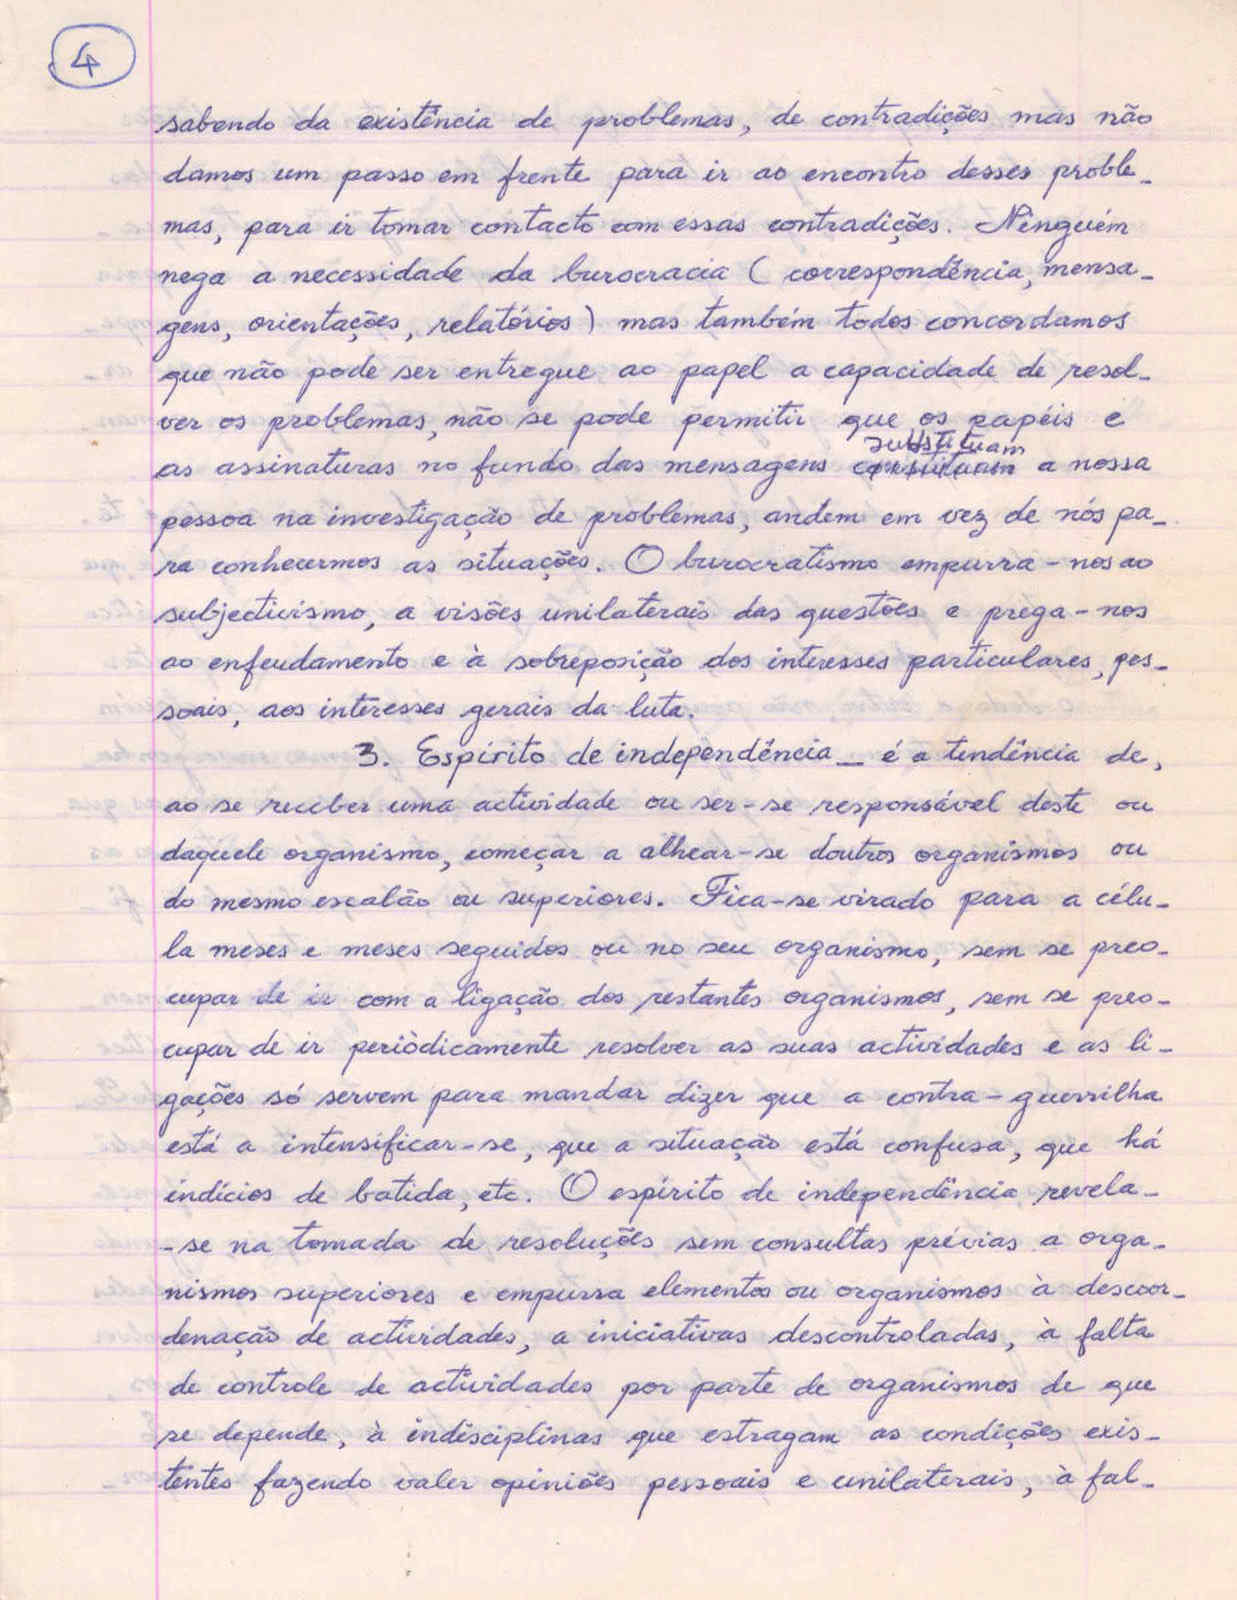 4
sabendo da existência de problemas, de contradições mas não
damos um passo em frente para ir ao encontro desses proble_
mas, para ir tomar contacto com essas contradições. Ninguém
nega a necessidade da burocracia (correspondência, mensa_
gens, orientações, relatórios) mas também todos concordamos
que não pode ser entregue ao papel a capacidade de resol_
ver os problemas, não se pode permitir que os papéis e
substituam
as assinaturas no fundo das mensagens a nossa
pessoa na investigação de problemas, andem em vez de nós pa_
ra conhecermos as situações. O burocratismo empurra-nos ao
subjectivismo, a visões unilaterais das questões e prega-nos
ao enfeudamento e à sobreposição dos interesses particulares, pes_
soais, aos interesses gerais da luta.
3. Espírito de independência _ é a tendência de,
ao se receber uma actividade ou ser-se responsável deste ou
daquele organismo, começar a alhear-se doutros organismos ou
do mesmo escalão ou superiores. Fica-se virado para a célu_
la meses e meses seguidos ou no seu organismo, sem se preo_
cupar de ir com a ligação dos restantes organismos, sem se preo_
cupar de ir periòdicamente resolver as suas actividades e as li_
gações só servem para mandar dizer que a contra-guerrilha
está a intensificar-se, que a situação está confusa, que há
indícios de batida, etc. O espírito de independência revela_
-se na tomada de resoluções sem consultas prévias a orga_
nismos superiores e empurra elementos ou organismos à descoor_
denação de actividades, a iniciativas descontroladas, à falta
de controle de actividades por parte de organismos de que
se depende, à indisciplinas que estragam as condições exis_
tentes fazendo valer opiniões pessoais e unilaterais, à fal_